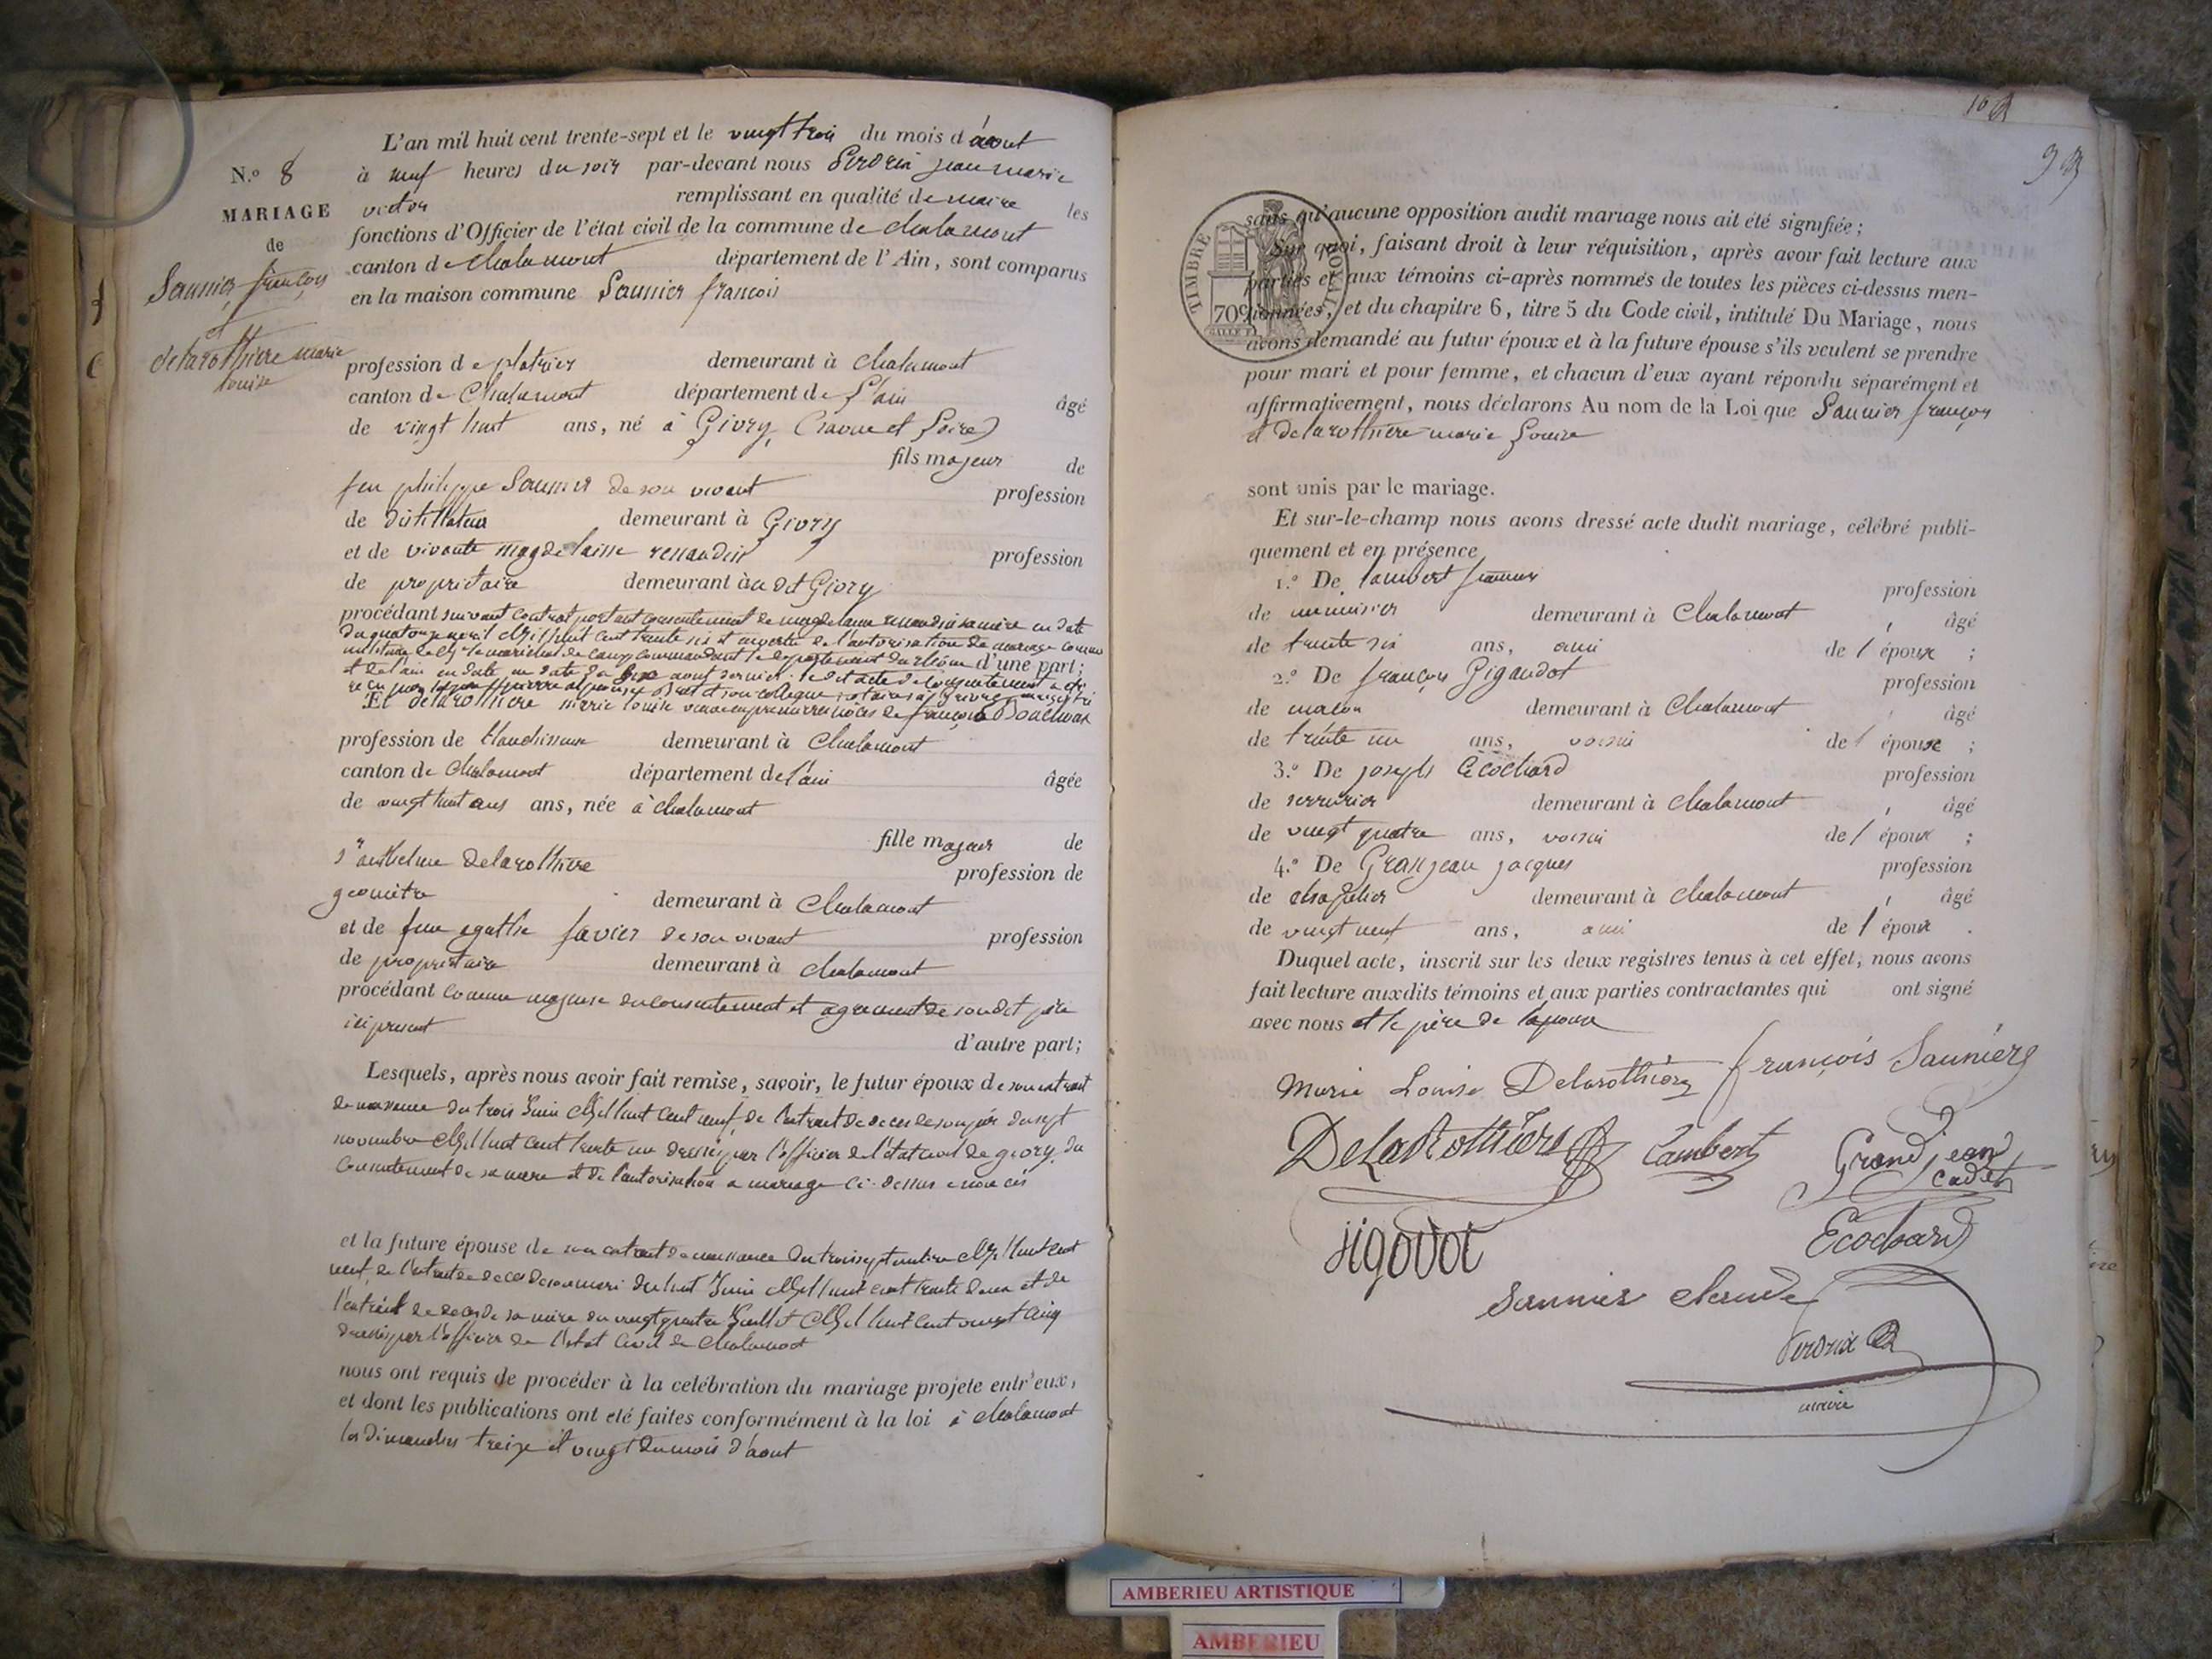 L'an mil huit cent trente-sept et le vingt trois du mois d'aout
N.o 8
à neuf heures du soir par-devant nous Perdrix jean marie
MARIAGE
victor remplissant en qualité de maire les
de
fonctions d'Officier de l'état civil de la commune de chalamont
Saunier françois
canton de chalamont département de l'Ain, sont comparus
et
en la maison commune Saunier francois
delarothiere marie
louise
profession de platrier demeurant à chalamont
canton de Chalamont département de l'ain âgé
de vingt huit ans, né à Givry, (saone et Loire)
fils majeur de
feu philippe Saunier de son vivant profession
de distillateur demeurant à Givry
et de vivante magdelaine renaudin profession
de propriétaire demeurant au dit Givry
procédant suivant contrat portant consentement de magdelaine renaudin sa mère en date
du quatorze avril Mil huit cent trente six et muni de l'autorisation de mariage
le marechal de camp commandant le departement du rhône d'une part;
et de l'ain en date aout dernier. le dit acte de consentement a été
son collegue notaires à Givry
Et delarothiere marie louise veuve en premières nôces de françois
profession de blanchisseuse demeurant à Chalamont
canton de Chalamont département de l'ain âgée
de vingt huit ans ans, née à chalamont
fille majeur de
sr anthelme delarothiere profession de
geomètre demeurant à Chalamont
et de feue agathe favier de son vivant profession
de propriétaire demeurant à chalamont
procédant comme majeure du consentement et agrément de son dit père
ici présent
d'autre part;
Lesquels, après nous avoir fait remise, savoir, le futur époux de son extrait
de naissance du trois Juin Mil huit cent neuf, de l'extrait de deces de son père du sept
novembre Mil huit cent trente un dressés par l'officier de l'état civil de givry, du
consentement de sa mere et de l'autorisation a mariage ci-dessus enoncés
et la future épouse de son extrait de naissance du trois septembre Mil huit cent
neuf, de l'extrait de deces de son mari du huit Juin Mil huit cent trente deux et de
l'extrait de deces de sa mère du vingt quatre Juillet Mil huit cent vingt cinq
dressés par l'officier de l'etat civil de Chalamont
nous ont requis de procéder à la celébration du mariage projeté entr'eux,
et dont les publications ont été faites conformément à la loi à chalamont
les dimanches treize et vingt du mois d'aout
99
TIMBRE ROYAL
70c
sans qu'aucune opposition audit mariage nous ait été signifiée;
Sur quoi, faisant droit à leur réquisition, après avoir fait lecture aux
parties et aux témoins ci-après nommés de toutes les pièces ci-dessus men-
tionnées, et du chapitre 6, titre 5 du Code civil, intitulé Du Mariage, nous
avons demandé au futur époux et à la future épouse s'ils veulent se prendre
pour mari et pour femme, et chacun d'eux ayant répondu séparément et
affirmativement, nous déclarons Au nom de la Loi que Saunier françois
et delarothiere marie Louise
sont unis par le mariage.
Et sur-le-champ nous avons dressé acte dudit mariage, célébré publi-
quement et en présence
1.o De lambert profession
de menuisier demeurant à Chalamont, âgé
de trente six ans, ami de l'époux;
2.o De françois Gigaudot profession
de macon demeurant à Chalamont, âgé
de trente un ans, voisin de l'épouse;
3.o De joseph Ecochard profession
de serrurier demeurant à chalamont, âgé
de vingt quatre ans, voisin de l'époux;
4.o De Granjean jacques profession
de chapelier demeurant à chalamont, âgé
de vingt neuf ans, ami de l'époux.
Duquel acte, inscrit sur les deux registres tenus à cet effet, nous avons
fait lecture auxdits témoins et aux parties contractantes qui ont signé
avec nous et le père de l'epouse
Marie Louise Delarothiere françois Sauniére
DeLaRothiere Lambert Grandjean
cadet
jigodot Ecochard
Saunier claude
Perdrix
maire
AMBERIEU ARTISTIQUE
AMBERIEU